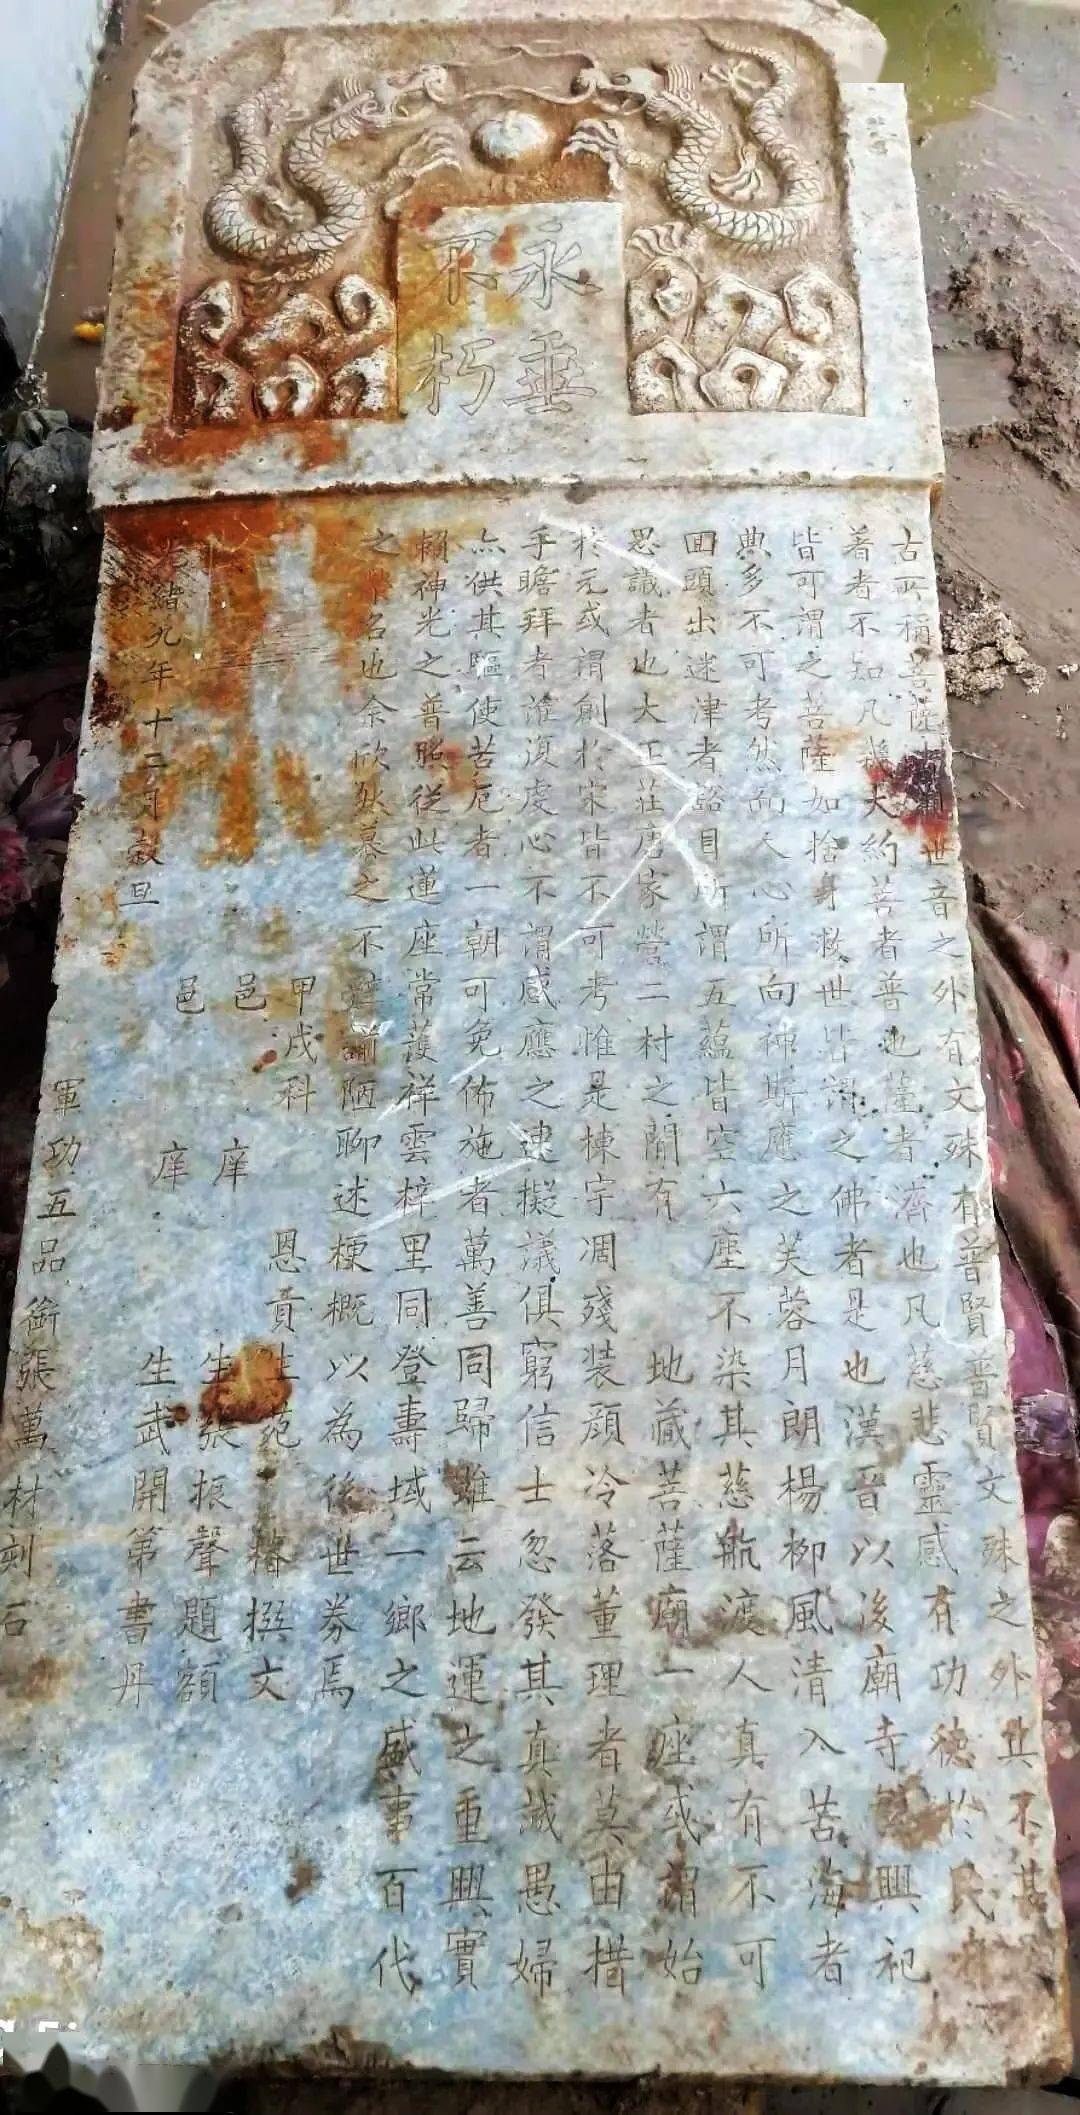 永垂
不朽
古所稱菩薩觀世音之外有文殊有普賢普賢文殊之外其不甚
著者不知凡幾大約菩者普也薩者濟也凡慈悲靈感有功德於民者
皆可謂之菩薩如捨身救世皆謂之佛者是也漢晉以後廟寺興祀
典多不可考然而人心所向神斯應之芙蓉月朗楊柳風清入苦海者
回頭出迷津者豁目所謂五蘊皆空六塵不染其慈航渡人真有不可
思議者也大王莊唐家營二村之間有地藏菩薩廟一座或謂始
於元或謂創於宋皆不可考惟是棟宇凋殘裝顏冷落董理者莫由措
手瞻拜者誰復虔心不謂感應之速擬議俱窮信士忽發其真誠愚婦
亦供其驅使苦厄者一朝可免佈施者萬善同歸雖云地運之重興實
賴神光之普照從此蓮座常護祥雲梓里同登壽域一鄉之盛事百代
之榮名也余欣然慕之不避譾陋聊述梗概以為後世券焉
甲戌科恩貢生苑椿撰文
邑庠生張振聲題額
邑庠生武開第書丹
光緒九年十二月穀旦
軍功五品銜張萬材刻石